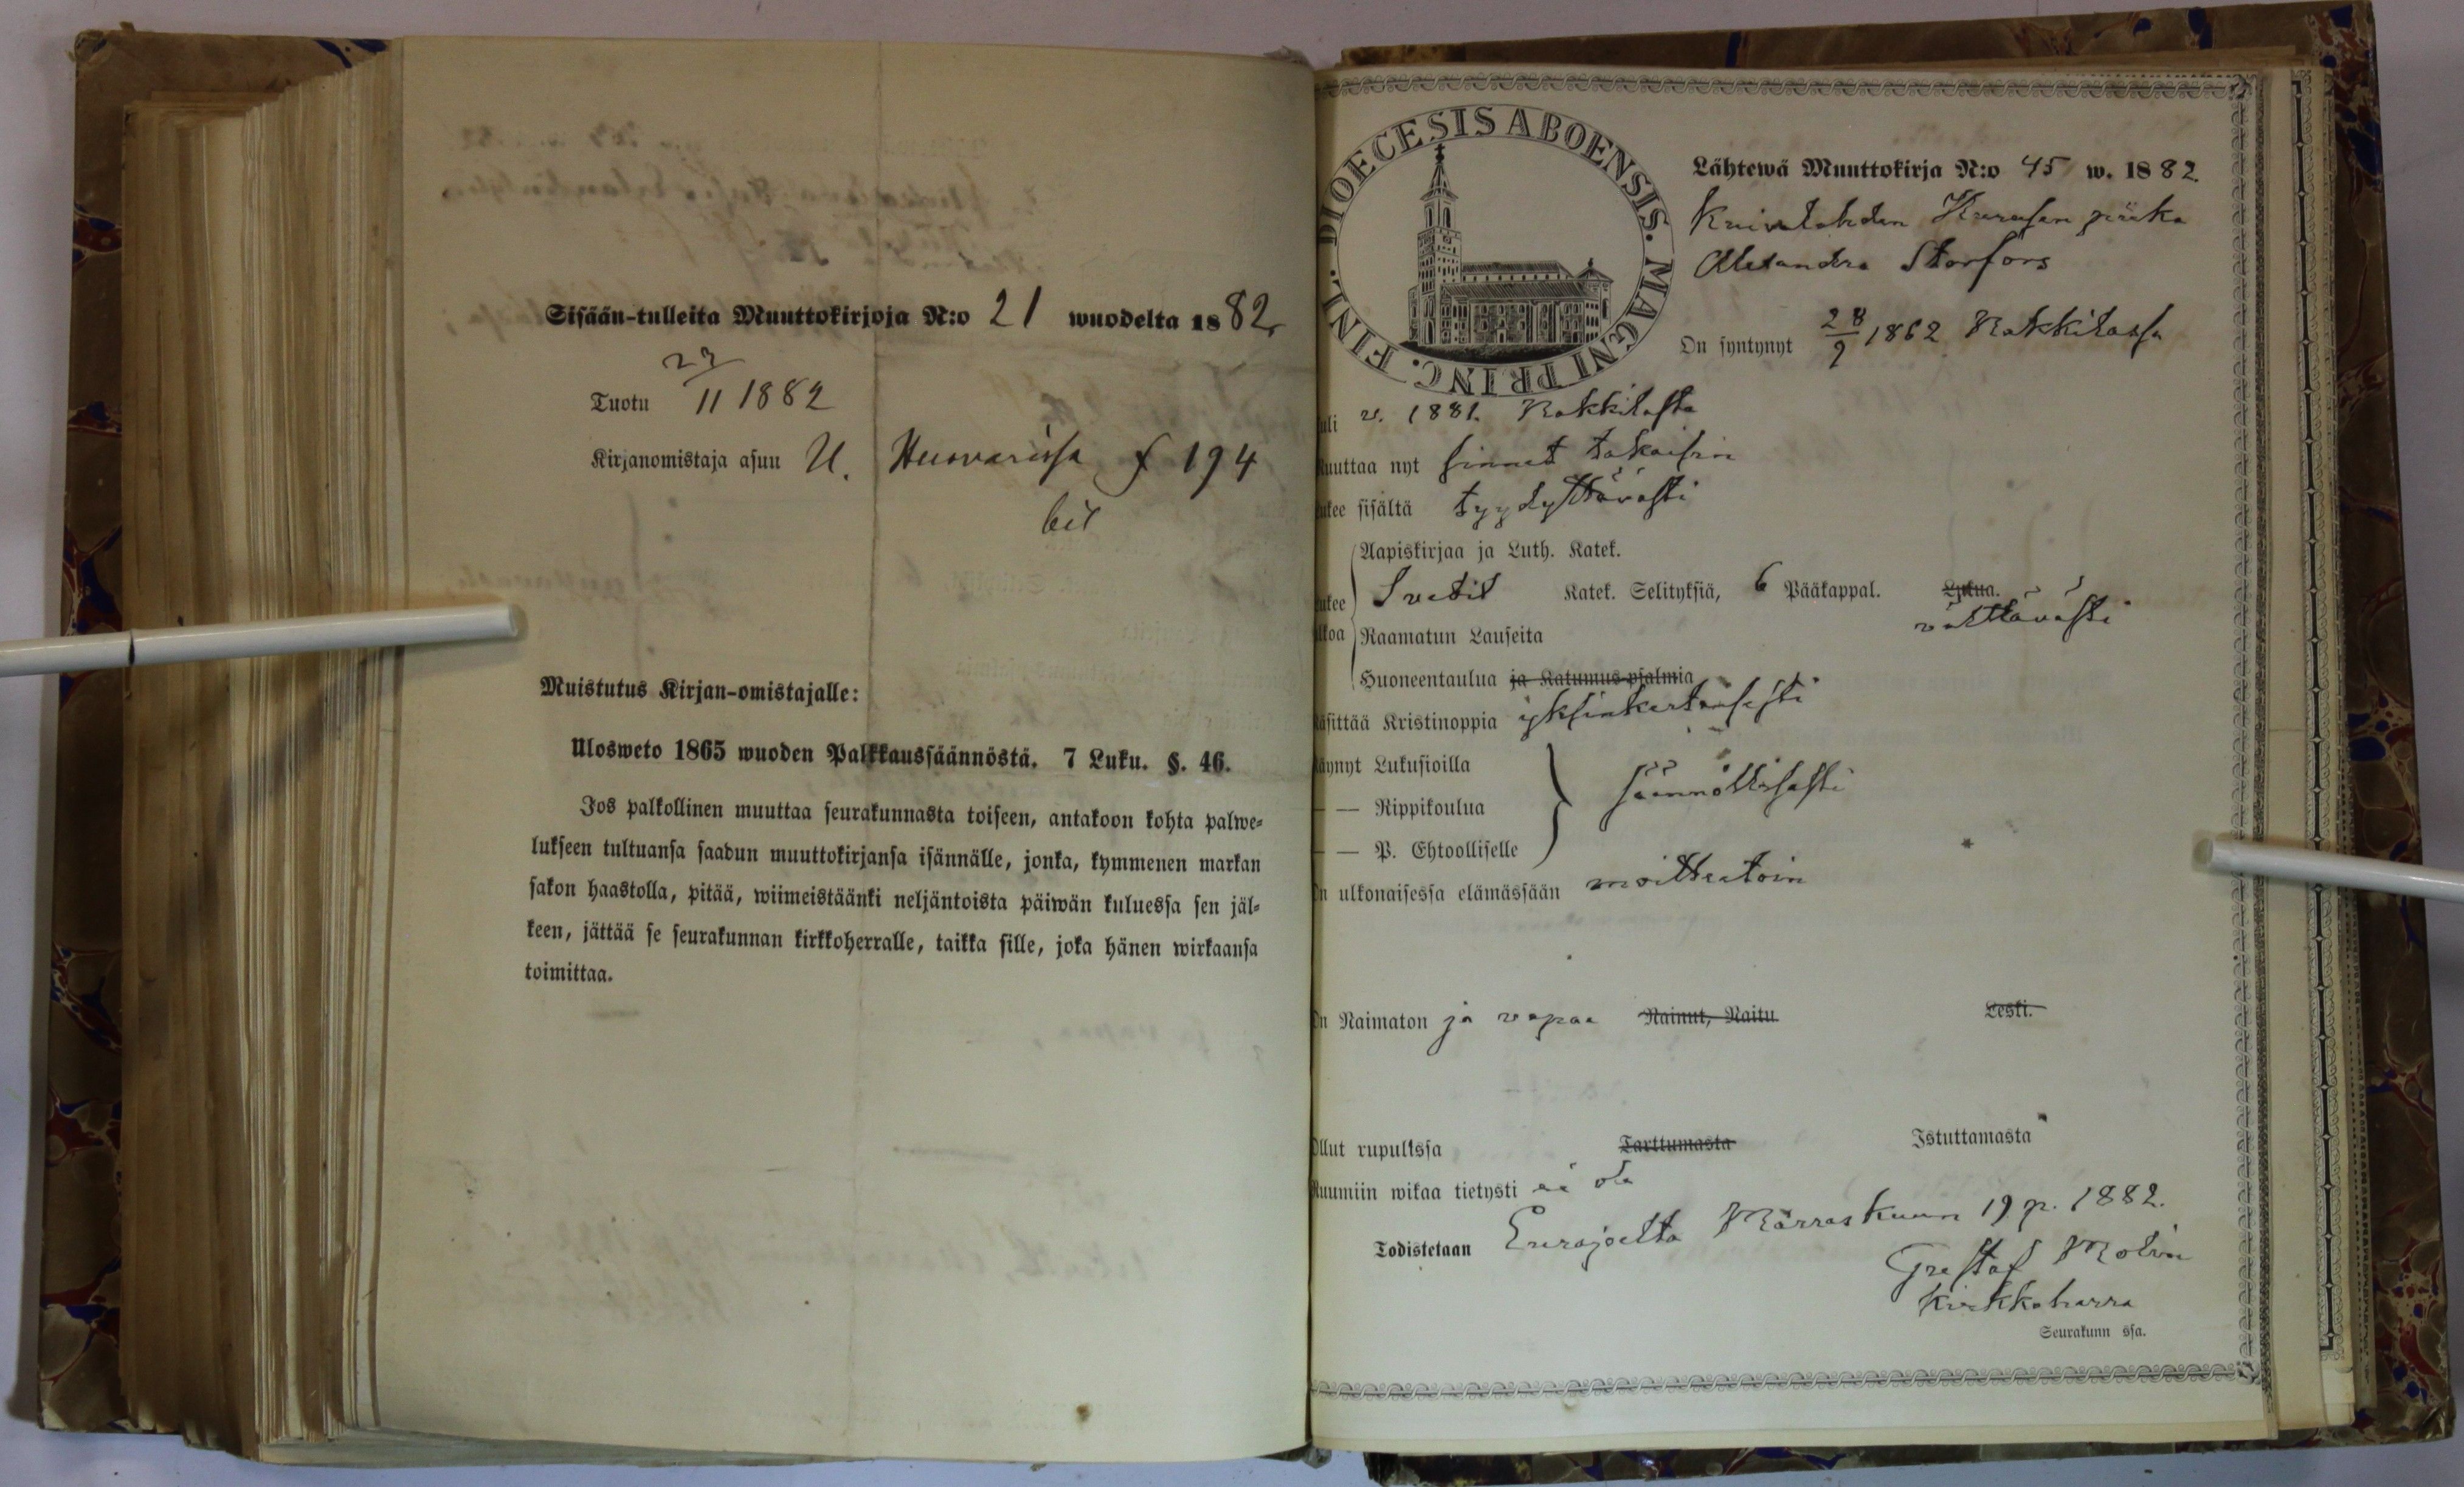 Sisään-tulleita Muuttokirjoja N:o 21 wuodelta 1882
Tuotu 27/11 1882
Kirjanomistaja asuu U. Huovarissa f 194
bil
Muistutus Kirjan-omistajalle:
Ulosweto 1865 wuoden Palkkaussäännöstä. 7 Luku. §. 46.
Jos palkollinen muuttaa seurakunnasta toiseen, antakoon kohta palwe-
lukseen tultuansa saadun muuttokirjansa isännälle, jonka, kymmenen markan
sakon haastolla, pitää, wiimeistäänki neljäntoista päiwän kuluessa sen jäl-
keen, jättää se seurakunnan kirkkoherralle, taikka sille, joka hänen wirkaansa
toimittaa.
DIOECESIS ABOENSIS. MAGNI PRINC. FINL.
Lähtewä Muuttokirja N:o 45 w. 1882.
Kuivalahden piika
Alexandra Storfors
On syntynyt 28/9 1862 Nakkilassa
uli v. 1881. Nakkilasta
uuttaa nyt sinnet takaisin
ukee sisältä tyydyttävästi
Aapiskirjaa ja Luth. Katek.
ukee Svebil Katek. Selityksiä, 6 Pääkappal. Lukua.
lkoa Raamatun Lauseita välttävästi
Huoneentaulua ja Katumus-psalmia
äsittää Kristinoppia yksinkertaisesti
äynyt Lukusioilla
— — Rippikoulua säännöllisesti
— — P. Ehtoolliselle
n ulkonaisessa elämässään moitteetoin
n Naimaton ja vapaa Nainut, Naitu Leski.
Ollut rupulissa Tarttumasta Istuttamasta
Ruumiin wikaa tietysti ei ole
Todistetaan Eurajoelta Marraskuun 19 p. 1882.
Gustaf Molin
Kirkkoherra
Seurakunn ssa.